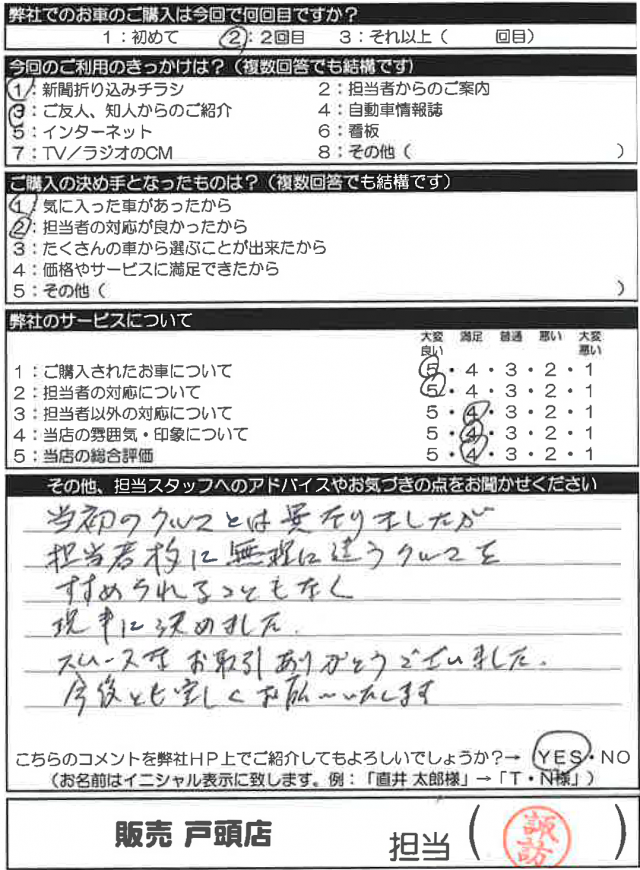 弊社でのお車のご購入は今回で何回目ですか?
1：初めて 2：2回目 3：それ以上（ 回目）
今回のご利用のきっかけは?（複数回答でも結構です）
1：新聞折り込みチラシ 2：担当者からのご案内
3：ご友人、知人からのご紹介 4：自動車情報誌
5：インターネット 6：看板
7：TV／ラジオのCM 8：その他（ ）
ご購入の決め手となったものは?（複数回答でも結構です）
1：気に入った車があったから
2：担当者の対応が良かったから
3：たくさんの車から選ぶことが出来たから
4：価格やサービスに満足できたから
5：その他（ ）
弊社のサービスについて
大変良い 満足 普通 悪い 大変悪い
1：ご購入されたお車について 5・4・3・2・1
2：担当者の対応について 5・4・3・2・1
3：担当者以外の対応について 5・4・3・2・1
4：当店の雰囲気・印象について 5・4・3・2・1
5：当店の総合評価 5・4・3・2・1
その他、担当スタッフへのアドバイスやお気づきの点をお聞かせください
当初のクルマとは異なりましたが
担当者様に無理に違うクルマを
すすめられることもなく
現車に決めました.
スムースなお取引ありがとうございました.
今後とも宜しくお願いいたします
こちらのコメントを弊社HP上でご紹介してもよろしいでしょうか?→ YES・NO
（お名前はイニシャル表示に致します。例：「直井 太郎様」→「T・N様」）
販売 戸頭店 担当（ 諏訪 ）